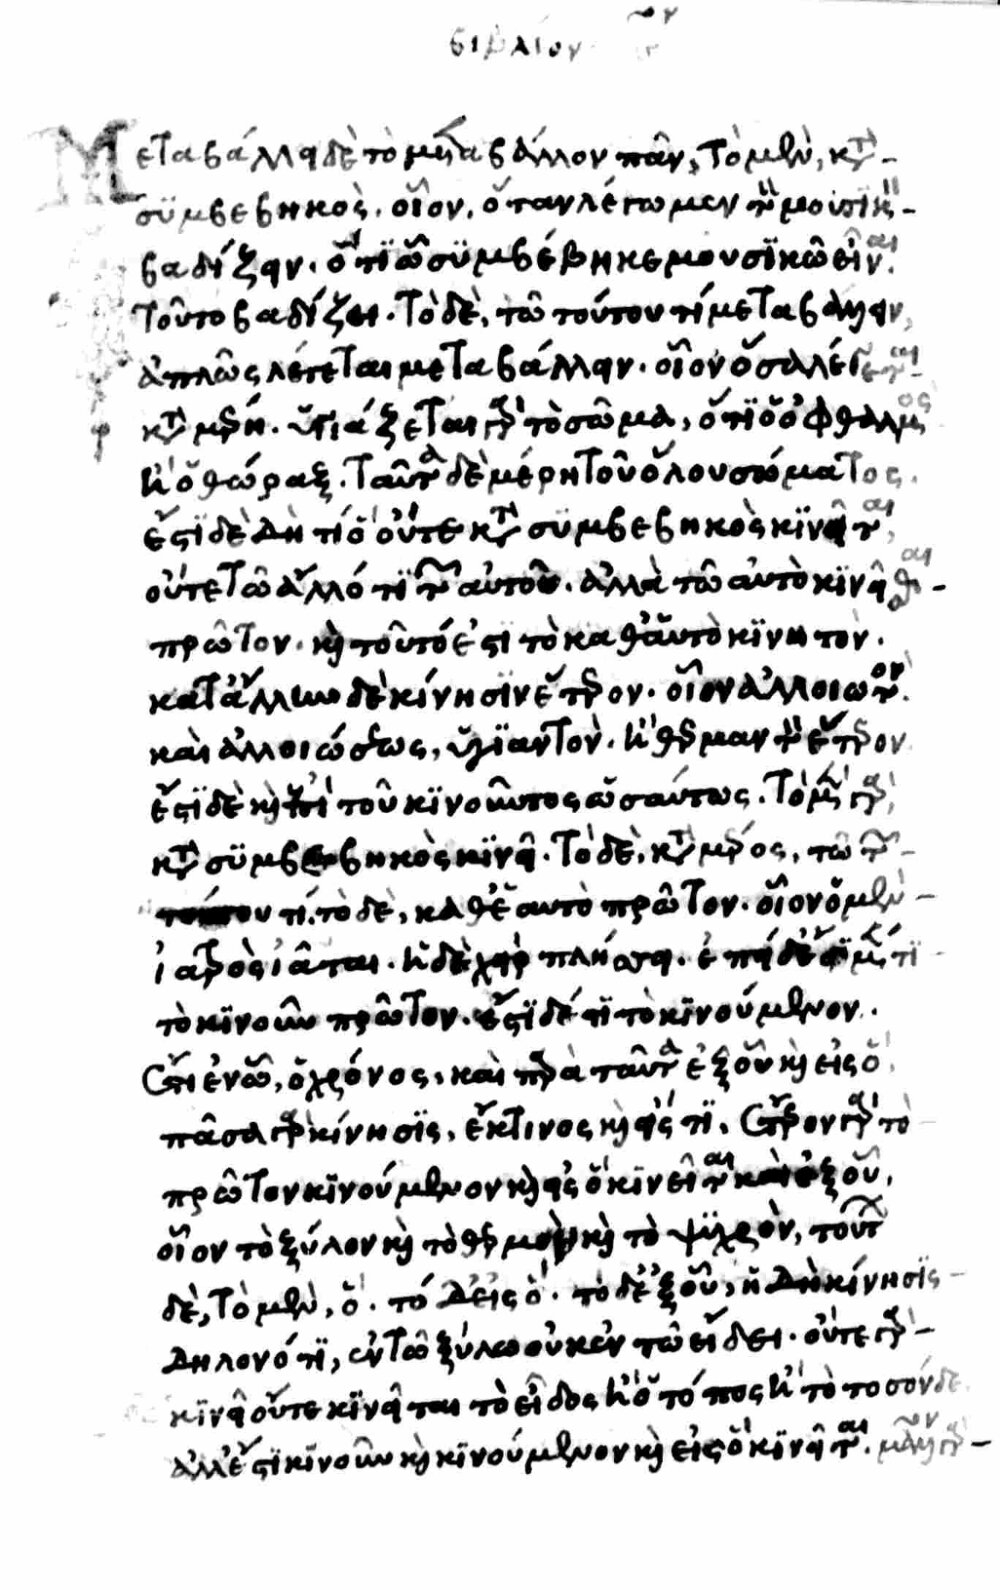 βιβλίον
Μεταβάλλει δὲ τὸ μεταβάλλον πᾶν, τὸ μὲν, κατὰ
συμβεβηκὸς. οἷον, ὅταν λέγωμεν τὸ μουσικὸν
βαδίζειν. ὅτι ᾧ συμβέβηκε μουσικῷ εἶναι.
τοῦτο βαδίζει. τὸ δὲ, τῷ τούτου τί μεταβάλλειν,
ἁπλῶς λέγεται μεταβάλλειν. οἷον ὅσα λέγεται
κατὰ μέρη. ὑγιάζεται γὰρ τὸ σῶμα, ὅτι ὁ ὀφθαλμὸς
ἢ ὁ θώραξ. ταῦτα δὲ μέρη τοῦ ὅλου σώματος.
ἔστι δὲ δή τι ὃ οὔτε κατὰ συμβεβηκὸς κινεῖται,
οὔτε τῷ ἄλλό τι τῶν αὐτοῦ. ἀλλὰ τῷ αὐτὸ κινεῖσθαι
πρῶτον. καὶ τοῦτό ἐστι τὸ καθ' αὑτὸ κινητόν.
κατ' ἄλλην δὲ κίνησιν ἕτερον. οἷον ἀλλοιωτόν.
καὶ ἀλλοιώσεως, ὑγιαντὸν. ἢ θερμαντὸν ἕτερον
ἔστι δὲ καὶ ἐπὶ τοῦ κινοῦντος ὡσαύτως. τὸ μὲν γὰρ,
κατὰ συμβεβηκὸς κινεῖ. τὸ δὲ, κατὰ μέρος, τῷ τῶν
τούτου τί. τὸ δὲ, καθ' ἑαυτὸ πρῶτον. οἷον ὁ μὲν
ἰατρὸς ἰᾶται. ἡ δὲ χεὶρ πλήττει. ἐπεὶ δέ ἐστι μέν τι
τὸ κινοῦν πρῶτον. ἔστι δέ τι τὸ κινούμενον.
ἔτι ἐν ᾧ, ὁ χρόνος. καὶ παρὰ ταῦτα ἐξ οὗ καὶ εἰς ὅ.
πᾶσα γὰρ κίνησις, ἔκ τινος καὶ εἴς τι. ἕτερον γὰρ τὸ
πρῶτον κινούμενον καὶ εἰς ὃ κινεῖται καὶ ἐξ οὗ,
οἷον τὸ ξύλον καὶ τὸ θερμὸν καὶ τὸ ψυχρὸν, τούτων
δὲ, τὸ μὲν, ὅ. τὸ δ' εἰς ὅ. τὸ δ' ἐξ οὗ, ἡ δὴ κίνησις
δηλονότι, ἐν τῷ ξύλῳ οὐκ ἐν τῷ εἴδει. οὔτε γὰρ
κινεῖ οὔτε κινεῖται τὸ εἶδος ἢ ὁ τόπος ἢ τὸ τοσόνδε
ἀλλ' ἔστι κινοῦν καὶ κινούμενον καὶ εἰς ὃ κινεῖται. μᾶλλον γὰρ